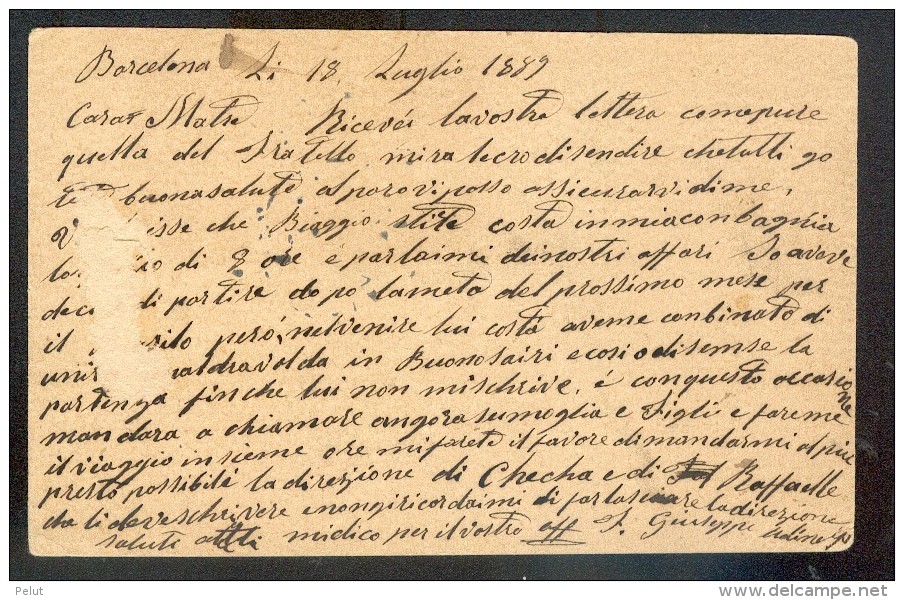 Barcelona Li 18 Luglio 1889
Cara Matre Ricevei lavostra lettera comepure
quella del Fratello, mira lecro disendire chetutti go
te buonasalute alparovi posso assicurarvi dime,
isse che Biaggio stite costa inmiaconbagnia
io di 8 ore é parlaimi deinostri affari Io aveve
dec di partire dopo lameta del prossimo mese per
il però, nelvenire lui costa aveme conbinato di
unir aldravolda in Buonosairi ecosi odisemse la
partenza finche lui non mischrive, é conquesto occasione
mandara a chiamare angora sumoglia e Figli e fareme
il viaggio insieme ore mifarete il favore dimandarmi alpiu
presto possibili la direzione di Checha e di Raffaelle
che li deveschrivere enongiricordaimi di farlascuare la direzione
saluti a tutti midico per il vostro aff F. Giuseppe
Pelut
delcampe.net